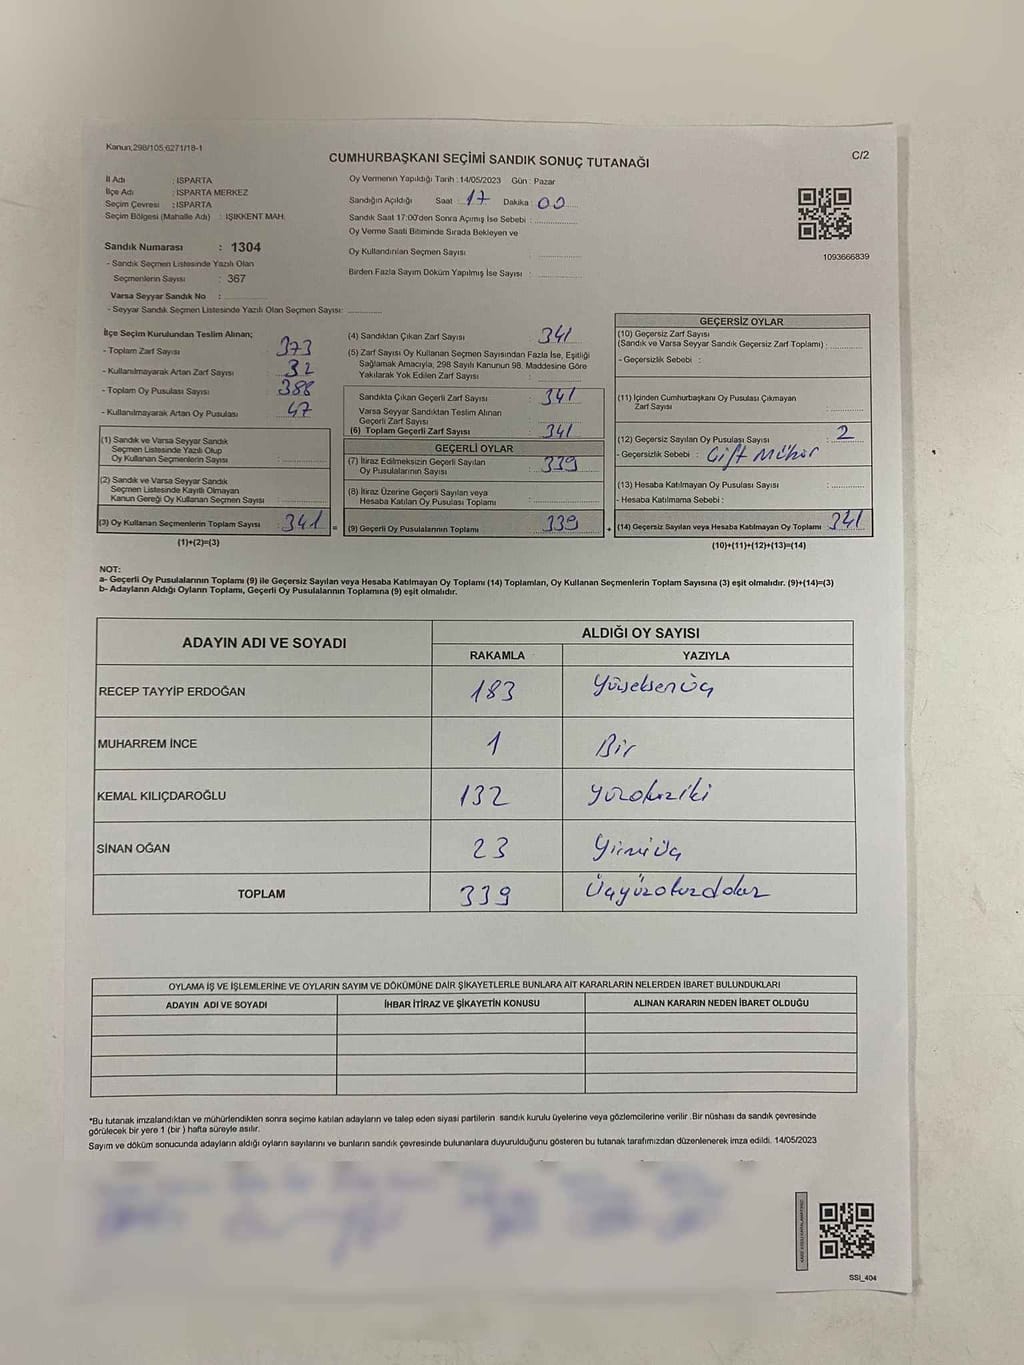 Kanun,298/105;6271/18-1
CUMHURBAŞKANI SEÇİMİ SANDIK SONUÇ TUTANAĞI
C/2
İl Adı : ISPARTA
İlçe Adı : ISPARTA MERKEZ
Seçim Çevresi : ISPARTA
Seçim Bölgesi (Mahalle Adı) : IŞIKKENT MAH.
Sandık Numarası : 1304
- Sandık Seçmen Listesinde Yazılı Olan
Seçmenlerin Sayısı : 367
Varsa Seyyar Sandık No :
- Seyyar Sandık Seçmen Listesinde Yazılı Olan Seçmen Sayısı:
Oy Vermenin Yapıldığı Tarih : 14/05/2023 Gün : Pazar
Sandığın Açıldığı Saat : 17 Dakika : 00
Sandık Saat 17:00'den Sonra Açımış İse Sebebi :
Oy Verme Saati Bitiminde Sırada Bekleyen ve
Oy Kullandırılan Seçmen Sayısı :
Birden Fazla Sayım Döküm Yapılmış İse Sayısı :
1093666839
İlçe Seçim Kurulundan Teslim Alınan;
- Toplam Zarf Sayısı : 373
- Kullanılmayarak Artan Zarf Sayısı : 32
- Toplam Oy Pusulası Sayısı : 388
- Kullanılmayarak Artan Oy Pusulası : 47
(1) Sandık ve Varsa Seyyar Sandık
Seçmen Listesinde Yazılı Olup
Oy Kullanan Seçmenlerin Sayısı :
(2) Sandık ve Varsa Seyyar Sandık
Seçmen Listesinde Kayıtlı Olmayan
Kanun Gereği Oy Kullanan Seçmen Sayısı :
(3) Oy Kullanan Seçmenlerin Toplam Sayısı : 341 =
(1)+(2)=(3)
(4) Sandıktan Çıkan Zarf Sayısı : 341
(5) Zarf Sayısı Oy Kullanan Seçmen Sayısından Fazla İse, Eşitliği
Sağlamak Amacıyla, 298 Sayılı Kanunun 98. Maddesine Göre
Yakılarak Yok Edilen Zarf Sayısı :
Sandıkta Çıkan Geçerli Zarf Sayısı : 341
Varsa Seyyar Sandıktan Teslim Alınan
Geçerli Zarf Sayısı :
(6) Toplam Geçerli Zarf Sayısı : 341
GEÇERLİ OYLAR
(7) İtiraz Edilmeksizin Geçerli Sayılan
Oy Pusulalarının Sayısı : 339
(8) İtiraz Üzerine Geçerli Sayılan veya
Hesaba Katılan Oy Pusulası Toplamı :
(9) Geçerli Oy Pusulalarının Toplamı : 339 +
GEÇERSİZ OYLAR
(10) Geçersiz Zarf Sayısı
(Sandık ve Varsa Seyyar Sandık Geçersiz Zarf Toplamı) :
- Geçersizlik Sebebi :
(11) İçinden Cumhurbaşkanı Oy Pusulası Çıkmayan
Zarf Sayısı :
(12) Geçersiz Sayılan Oy Pusulası Sayısı : 2
- Geçersizlik Sebebi : Çift Mühür
(13) Hesaba Katılmayan Oy Pusulası Sayısı :
- Hesaba Katılmama Sebebi :
(14) Geçersiz Sayılan veya Hesaba Katılmayan Oy Toplamı : 341
(10)+(11)+(12)+(13)=(14)
NOT:
a- Geçerli Oy Pusulalarının Toplamı (9) ile Geçersiz Sayılan veya Hesaba Katılmayan Oy Toplamı (14) Toplamları, Oy Kullanan Seçmenlerin Toplam Sayısına (3) eşit olmalıdır. (9)+(14)=(3)
b- Adayların Aldığı Oyların Toplamı, Geçerli Oy Pusulalarının Toplamına (9) eşit olmalıdır.
ADAYIN ADI VE SOYADI ALDIĞI OY SAYISI
RAKAMLA YAZIYLA
RECEP TAYYİP ERDOĞAN 183 Yüzseksenüç
MUHARREM İNCE 1 Bir
KEMAL KILIÇDAROĞLU 132 Yüzotuziki
SİNAN OĞAN 23 Yirmiüç
TOPLAM 339 Üçyüzotuzdokuz
OYLAMA İŞ VE İŞLEMLERİNE VE OYLARIN SAYIM VE DÖKÜMÜNE DAİR ŞİKAYETLERLE BUNLARA AİT KARARLARIN NELERDEN İBARET BULUNDUKLARI
ADAYIN ADI VE SOYADI İHBAR İTİRAZ VE ŞİKAYETİN KONUSU ALINAN KARARIN NEDEN İBARET OLDUĞU
*Bu tutanak imzalandıktan ve mühürlendikten sonra seçime katılan adayların ve talep eden siyasi partilerin sandık kurulu üyelerine veya gözlemcilerine verilir .Bir nüshası da sandık çevresinde
görülecek bir yere 1 (bir ) hafta süreyle asılır.
Sayım ve döküm sonucunda adayların aldığı oyların sayılarını ve bunların sandık çevresinde bulunanlara duyurulduğunu gösteren bu tutanak tarafımızdan düzenlenerek imza edildi. 14/05/2023
SSI_404